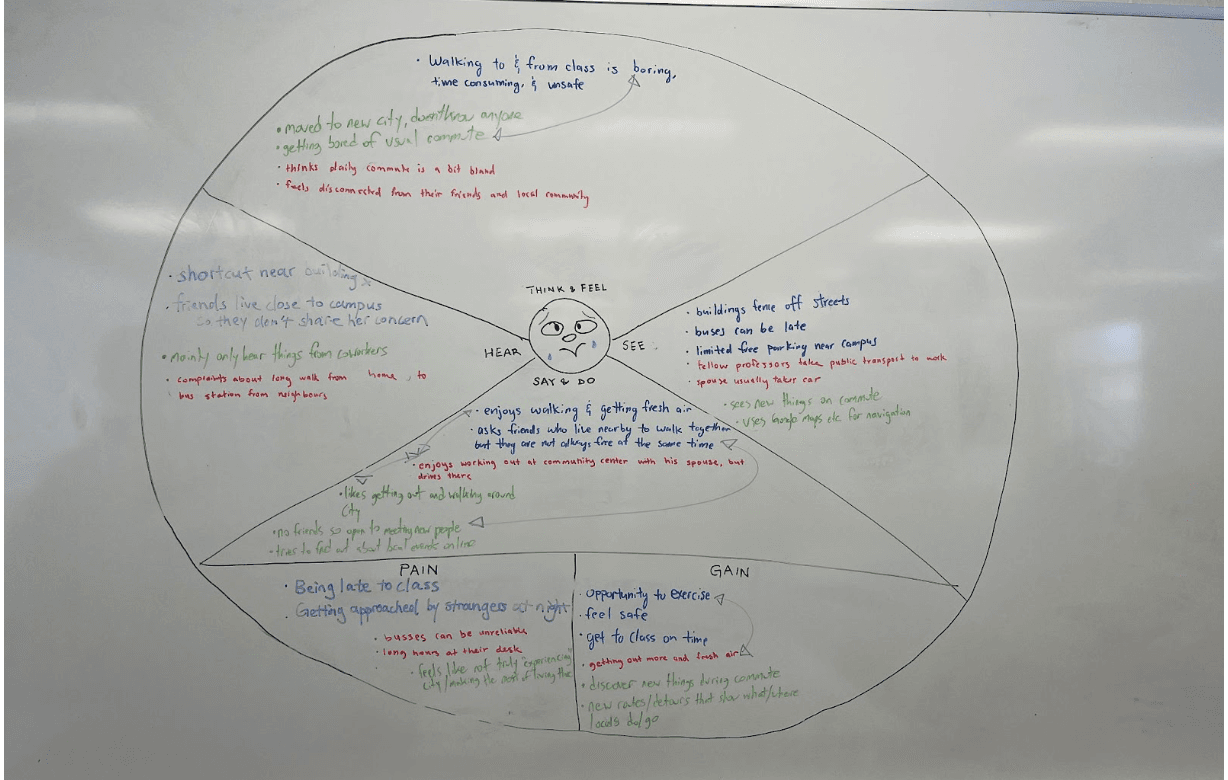 · Walking to & from class is boring,
time consuming, & unsafe
• moved to new city, doesn't know anyone
• getting bored of usual commute
· thinks daily commute is a bit bland
· feels disconnected from their friends and local community
THINK & FEEL
HEAR
SEE
SAY & DO
· shortcut near building
· friends live close to campus
so they don't share her concern
• Mainly only hear things from coworkers
· complaints about long walk from home, to
bus station from neighbours
· buildings fence off streets
· buses can be late
· limited free parking near campus
· fellow professors take public transport to work
· spouse usually takes car
· sees new things on commute
· uses Google maps etc for navigation
· enjoys walking & getting fresh air
· asks friends who live nearby to walk together
but they are not always free at the same time
· enjoys working out at community center with his spouse, but
drives there
· likes getting out and walking around
city
· no friends so open to meeting new people
· tries to find out about local events online
PAIN
· Being late to class
· Getting approached by strangers at night
· busses can be unreliable
· long hours at their desk
· feels like not truly "experiencing"
city/making the most of living there
GAIN
· opportunity to exercise
· feel safe
· get to class on time
· getting out more and fresh air
· discover new things during commute
· new routes/detours that show what/where
locals do/go